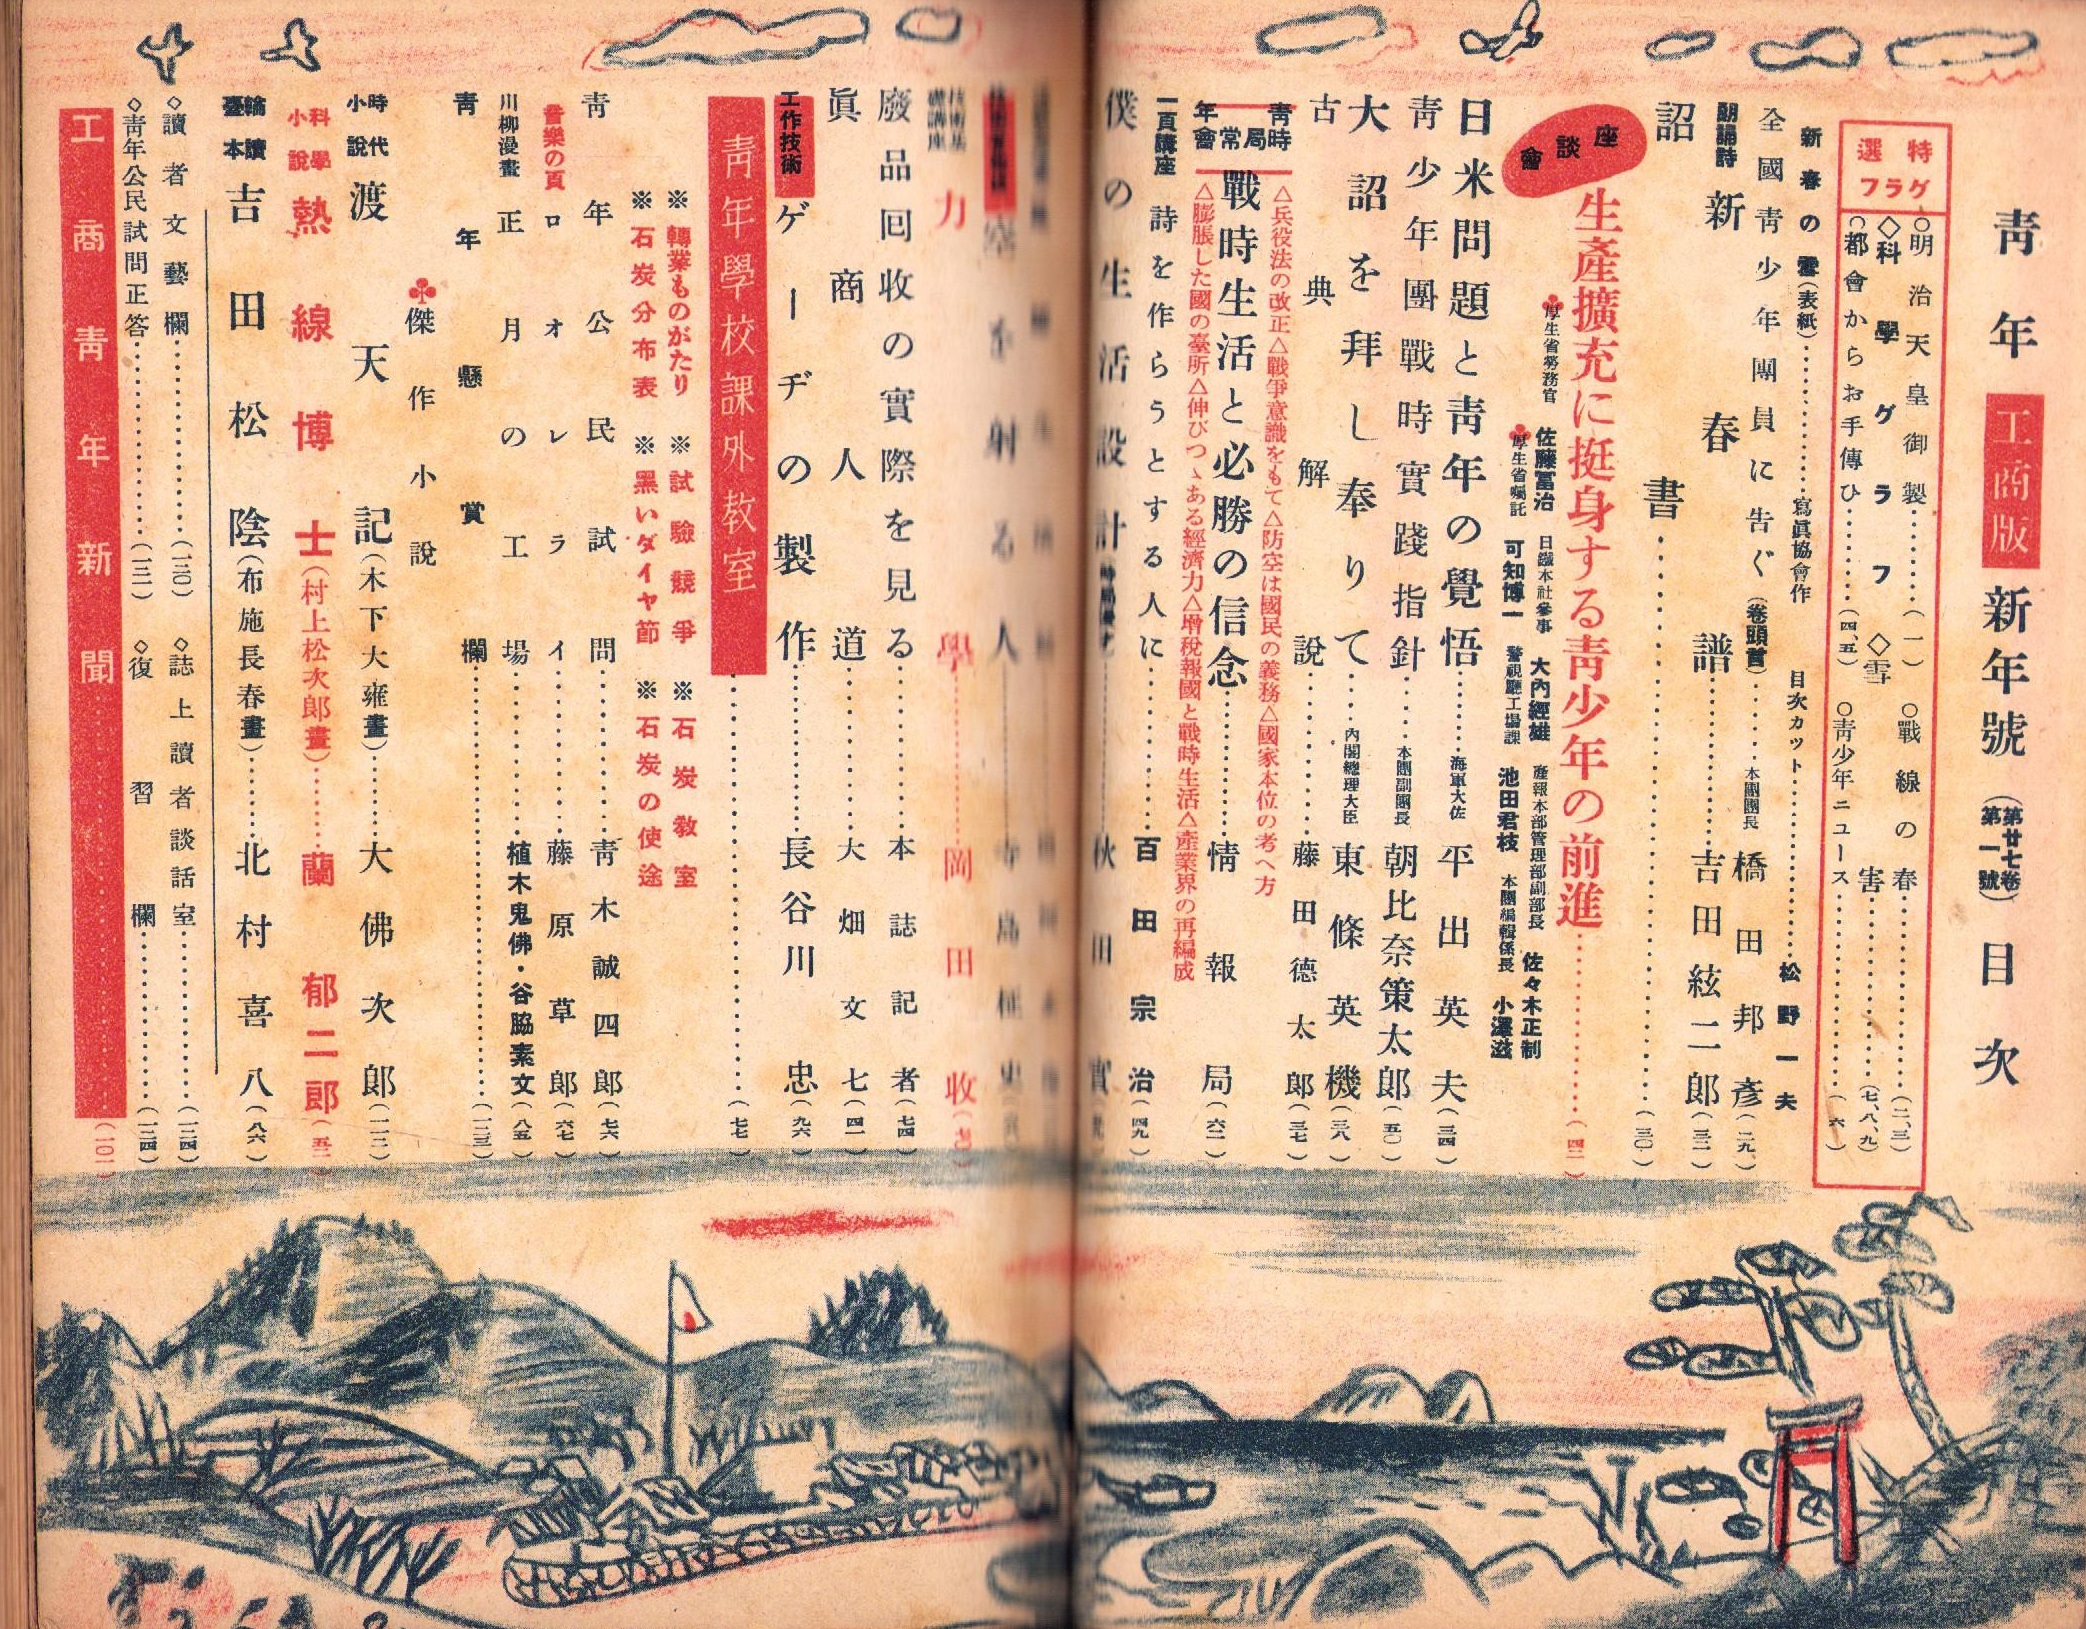 靑年 工商版 新年號 (第廿七卷 第一號) 目次
特選グラフ
○明治天皇御製………(一)
○戰線の春………(二、三)
◇科學グラフ◇雪害………(七、八、九)
○都會からお手傳ひ………(四、五)
○靑少年ニュース………(六)
新春の雲(表紙)………寫眞協會作
目次カット………松野一夫
全國靑少年團員に吿ぐ(卷頭言)………本團團長 橋田邦彥(二九)
朗誦詩 新春譜………吉田絃二郎(三二)
詔書………(三〇)
座談會 生產擴充に挺身する靑少年の前進………(四二)
厚生省勞務官 佐藤冨治
日鐵本社參事 大內經雄
產報本部管理部副部長 佐々木正制
厚生省囑託 可知博一
警視廳工場課 池田君枝
本團編輯係長 小澤滋
日米問題と靑年の覺悟………海軍大佐 平出英夫(三四)
靑少年團戰時實踐指針………本團副團長 朝比奈策太郎(五〇)
大詔を拜し奉りて………內閣總理大臣 東條英機(三八)
古典解說………藤田德太郎(三七)
靑年常會 時局
△兵役法の改正△戰爭意識をもて△防空は國民の義務△國家本位の考へ方
戰時生活と必勝の信念………情報局(六二)
△膨脹した國の臺所△伸びつゝある經濟力△增稅報國と戰時生活△產業界の再編成
一頁講座 詩を作らうとする人に………百田宗治(四九)
僕の生活設計………秋田實
空を射る人………寺島柾史
技術基礎講座 力學………岡田收
廢品回收の實際を見る………本誌記者(七四)
眞商人道………大畑文七(四一)
工作技術 ゲージの製作………長谷川忠(九六)
靑年學校課外敎室………(七七)
※轉業ものがたり ※試驗競爭 ※石炭敎室
※石炭分布表 ※黑いダイヤ節 ※石炭の使途
靑年公民試問………靑木誠四郎(七六)
音樂の頁 ロオレライ………藤原草郎(六七)
川柳漫畫 正月の工場………植木鬼佛・谷脇素文(八五)
靑年懸賞欄………(一二三)
傑作小說
時代小說 渡天記(木下大雍畫)………大佛次郎(一一二)
科學小說 熱線博士(村上松次郎畫)………蘭郁二郎(五二)
輪讀臺本 吉田松陰(布施長春畫)………北村喜八(八六)
◇讀者文藝欄………(一三〇)
◇誌上讀者談話室………(一二四)
◇靑年公民試問正答………(一三一)
◇復習欄………(一三四)
工商靑年新聞………(一〇一)